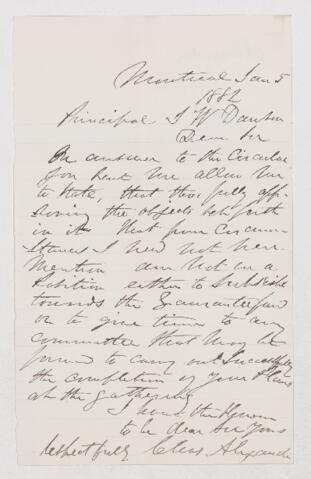 Montreal Jan 5
1882
Principal J W Dawson
Dear Sir
In answer to the Circular
you sent me allow me
to state, that tho fully app-
roving the objects set forth
in it that from Circum-
stances I need not here
mention am not in a
Position either to subscribe
towards the Guarantee fund
or to give time to any
committee that may be
formed to carry out successfully
the completion of your Plans
at the gathering
I have the Honour
to be dear Sir Yours
respectfully Chas Alexander